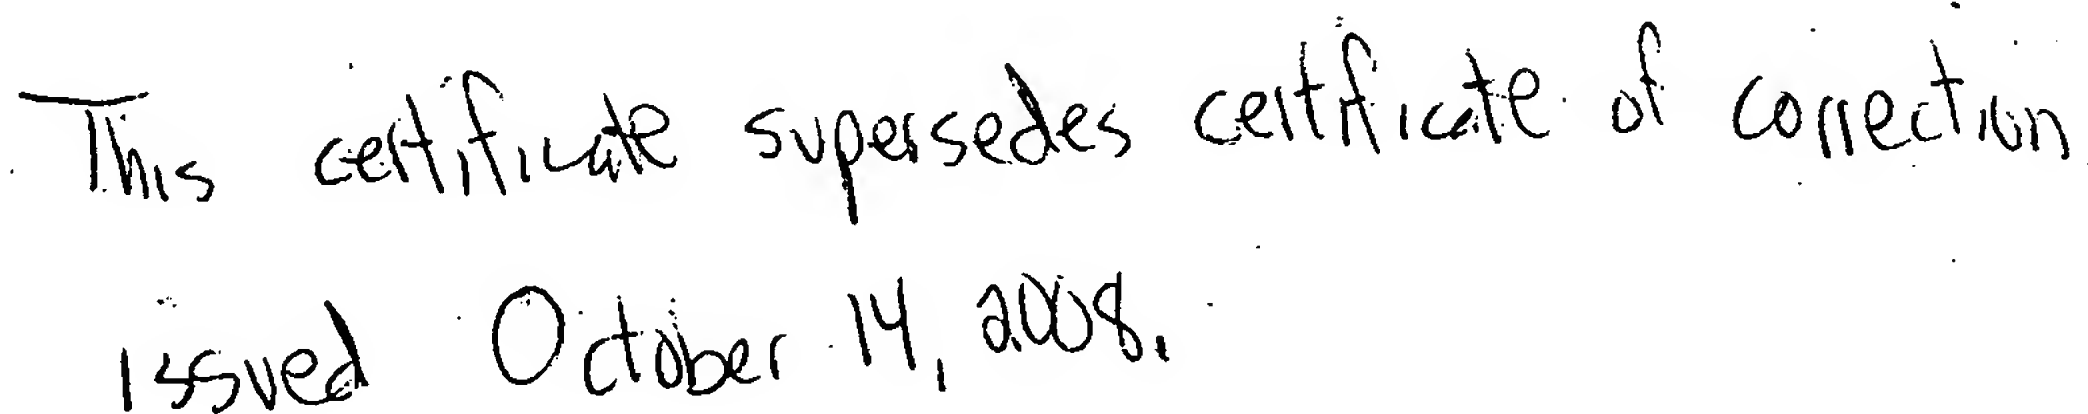 This certificate supersedes certificate of correction
issued October 14, 2008.